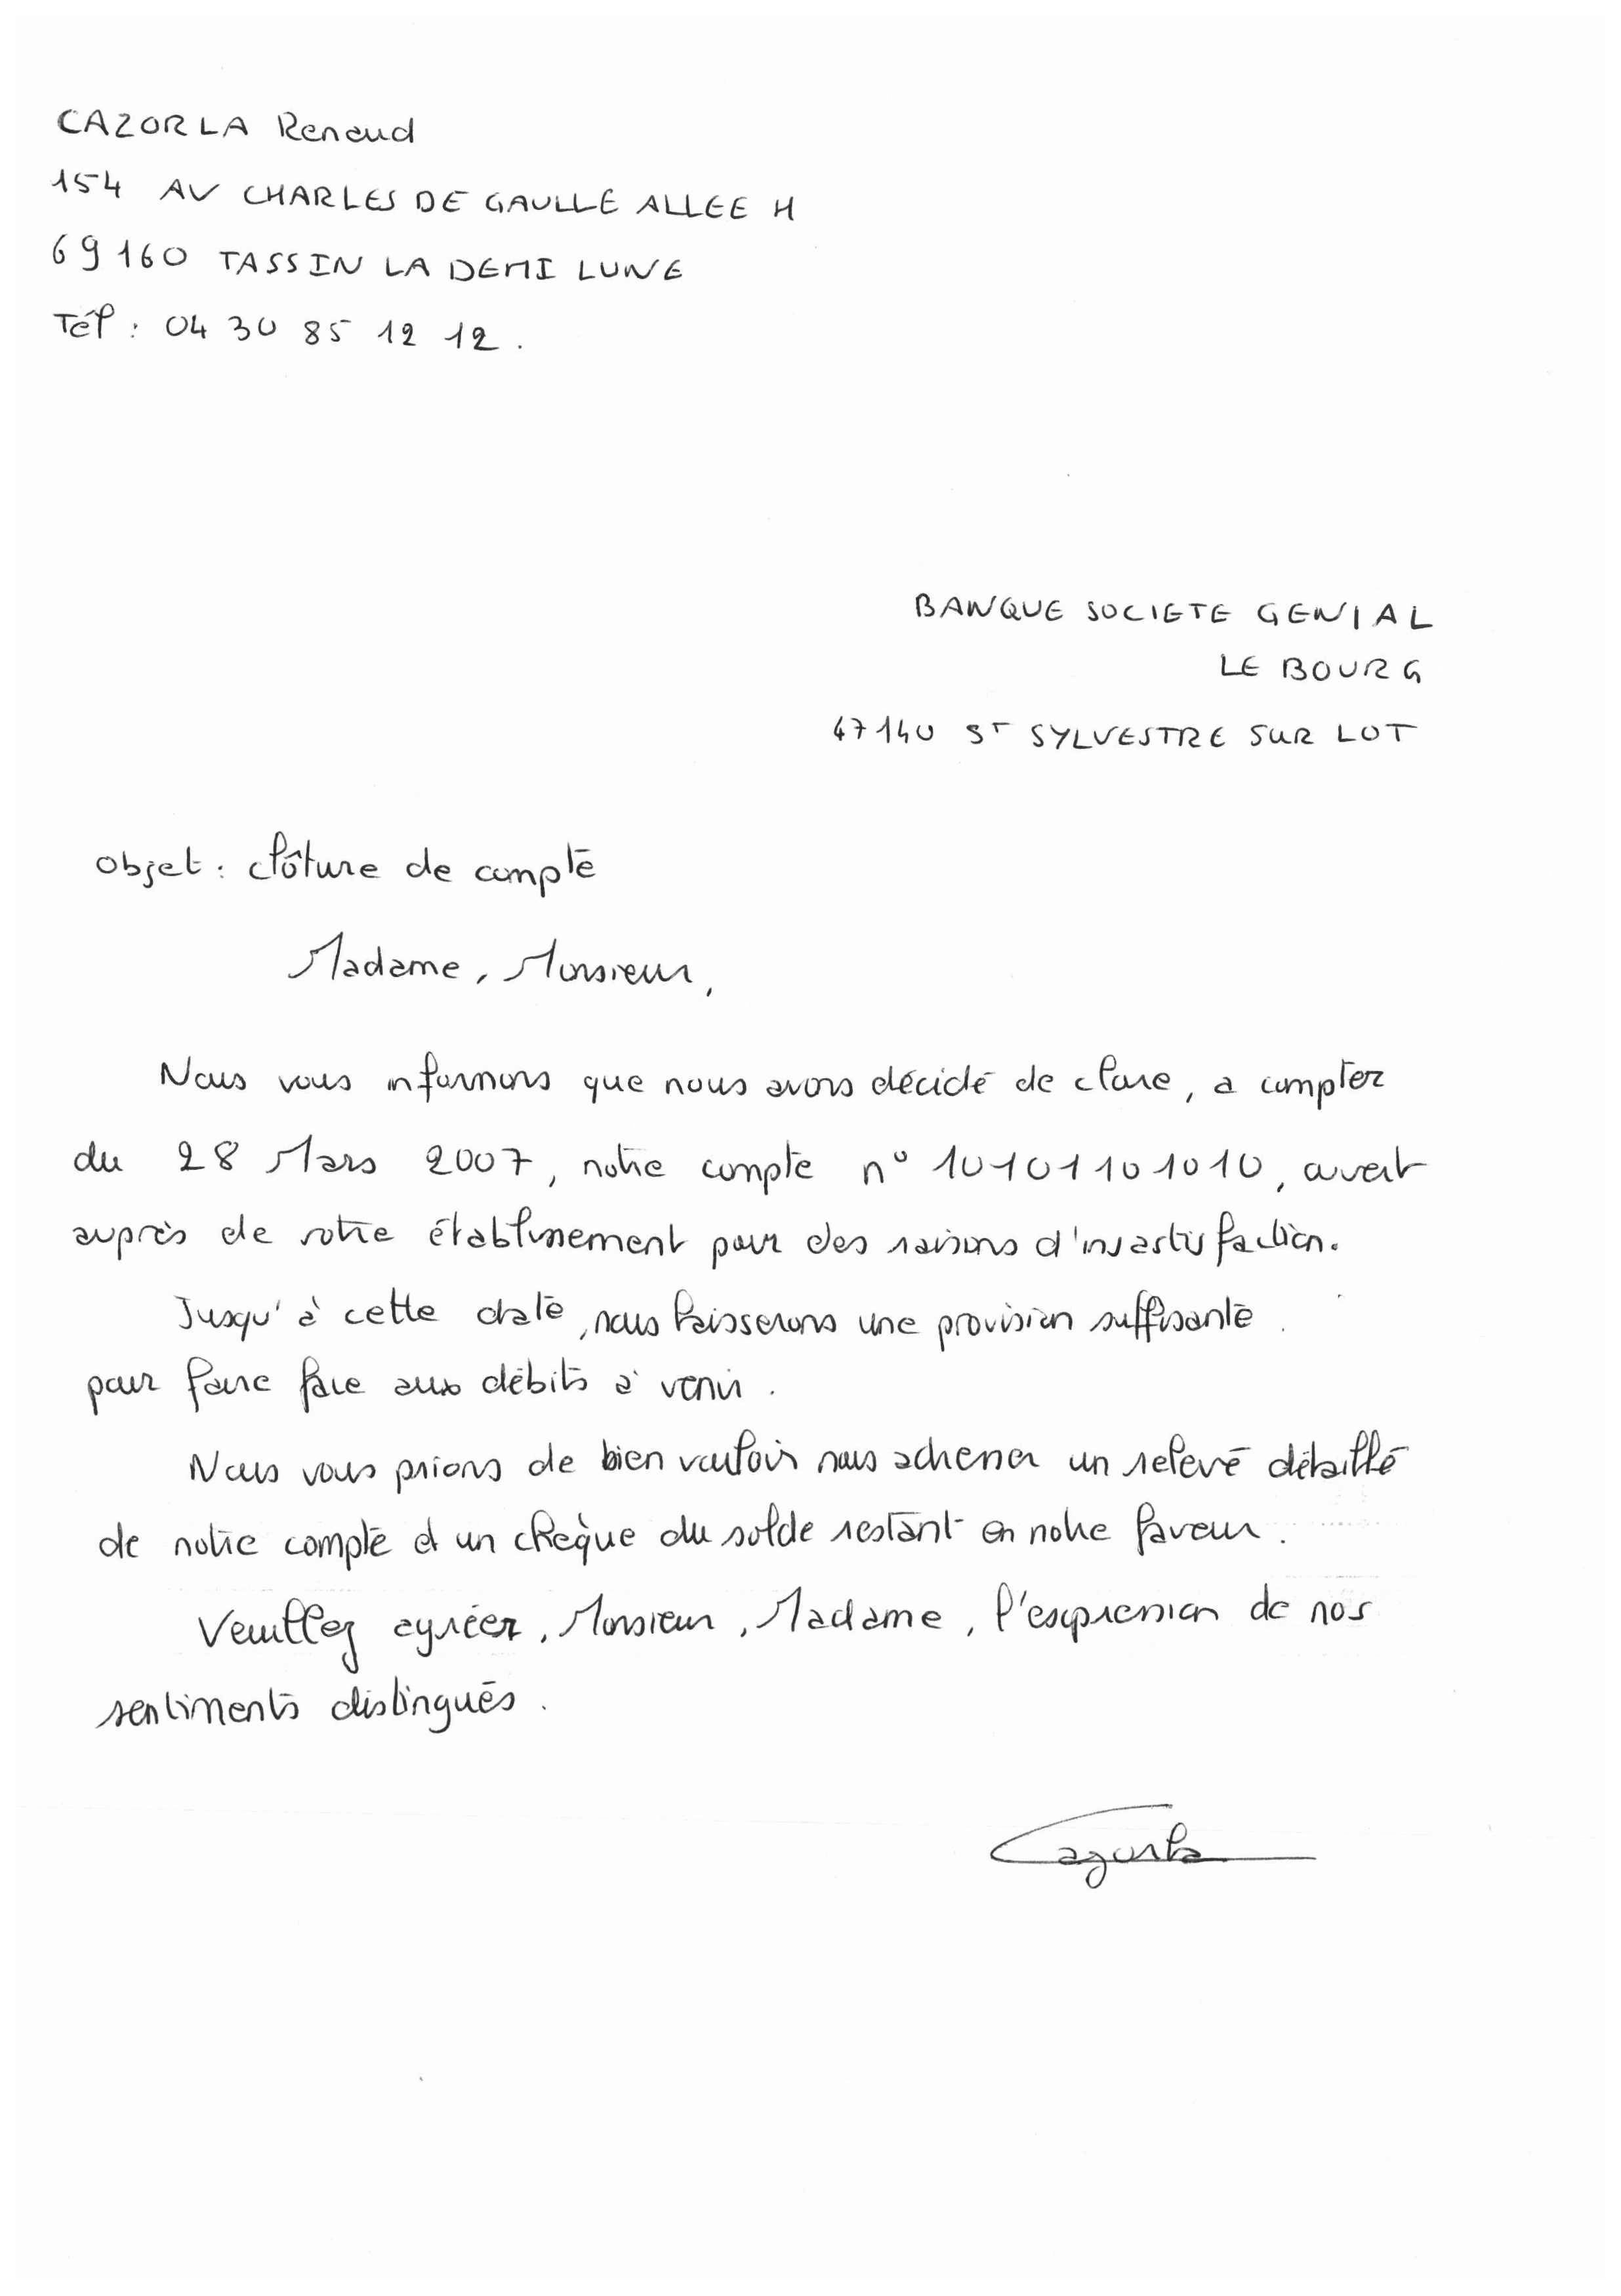 CAZORLA Renaud
154 AV CHARLES DE GAULLE ALLEE H
69160 TASSIN LA DEMI LUNE
Tél : 04 30 85 12 12.
BANQUE SOCIETE GENIAL
LE BOURG
47140 ST SYLVESTRE SUR LOT
Objet : clôture de compte
Madame, Monsieur,
Nous vous informons que nous avons décidé de clore, a compter
du 28 Mars 2007, notre compte n° 10101101010, ouvert
auprès de votre établissement pour des raisons d'insastisfaction.
Jusqu'à cette date, nous laisserons une provision suffisante
pour faire face aux débits à venir.
Nous vous prions de bien vouloir nous achener un relevé détaillé
de notre compte et un chèque du solde restant en notre faveur.
Veuillez agréer, Monsieur, Madame, l'expression de nos
sentiments distingués.
Cazorla